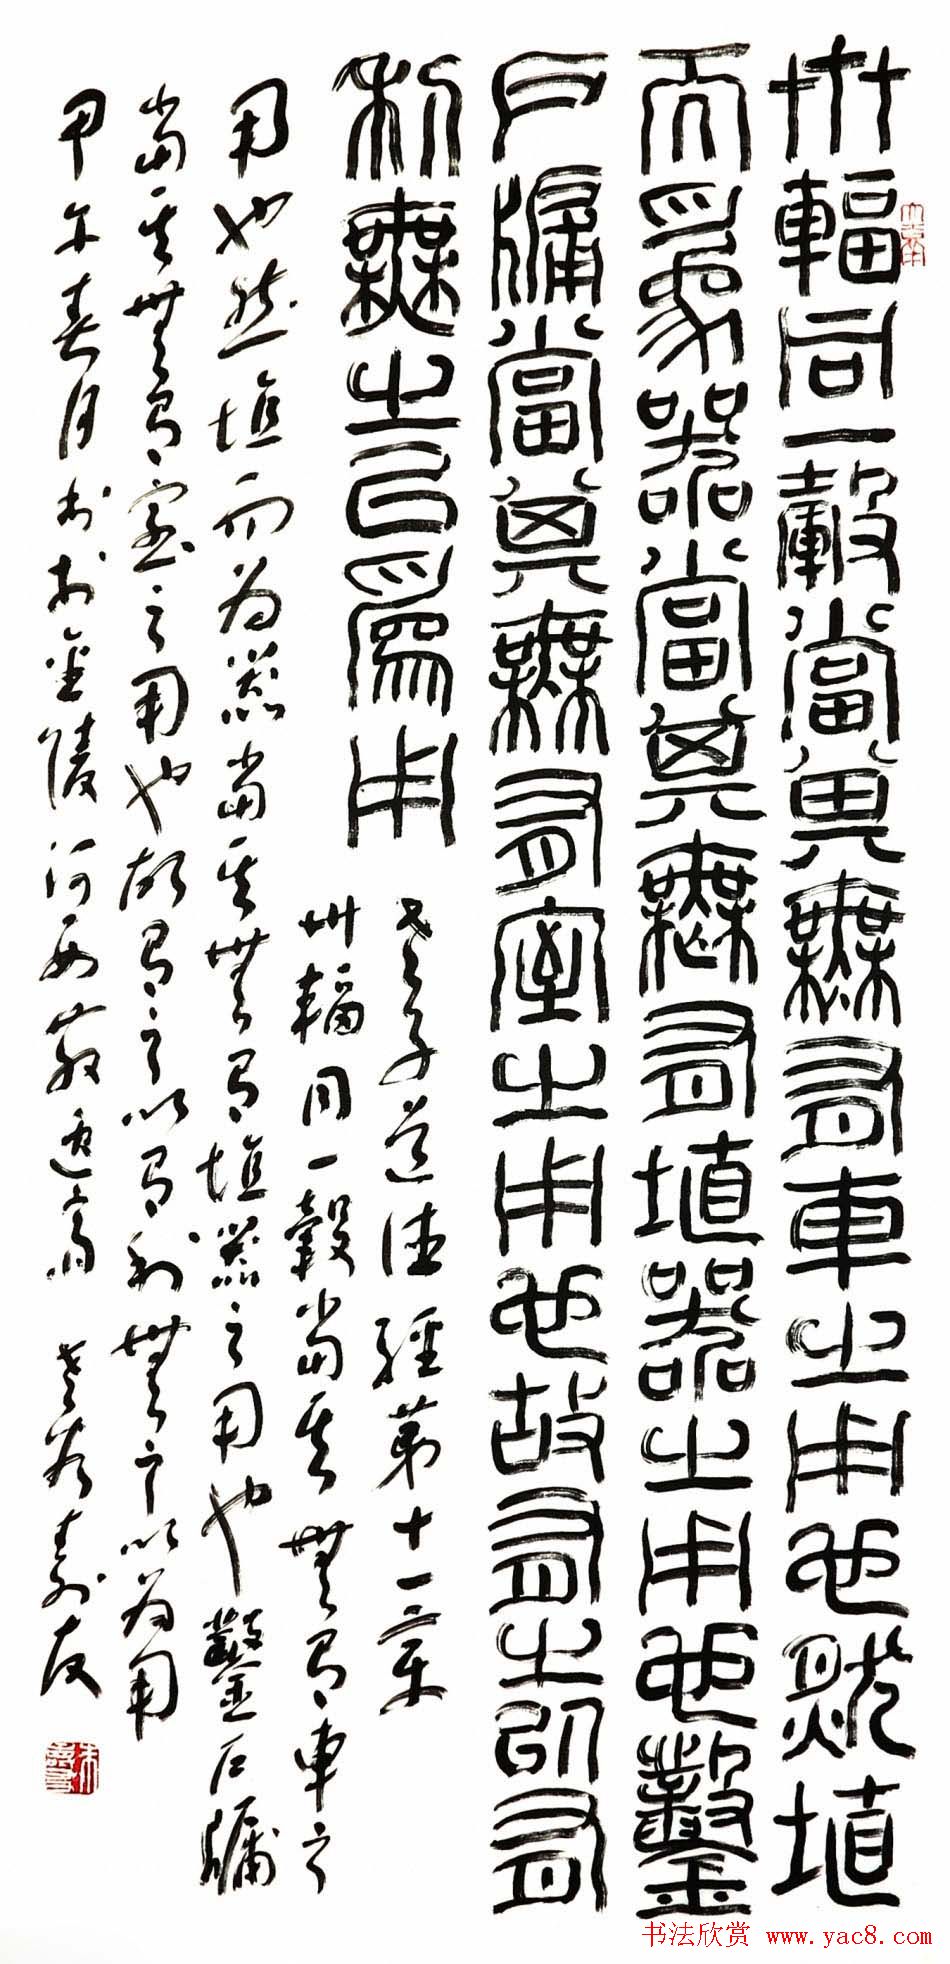 卅輻同一轂當其無有車之用也然埴
而為器當其無有埴器之用也鑿
戶牖當其無有室之用也故有之以有
利無之以為用
老子道德經第十一章
卅輻同一轂當其無有車之
用也然埴而為器當其無有埴器之用也鑿戶牖
當其無有室之用也故有之以有利無之以為用
甲午春月書於金陵河西 老友
书法欣赏 www.yac8.com